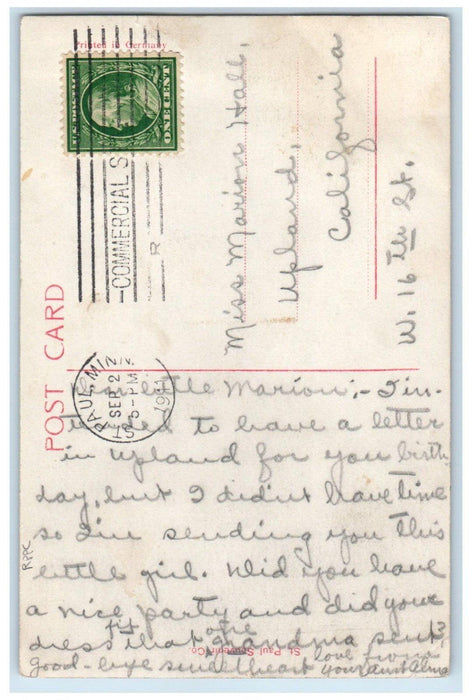 Printed in Germany
U.S. POSTAGE
ONE CENT
COMMERCIAL S
R
ST. PAUL, MINN.
SEP 2
5-PM
1911
POST CARD
Miss Marion Hall,
Upland,
California
W. 16th St.
little Marion; - I in-
to have a letter
in Upland for you birth
day, but I didn't have time
so I'm sending you this
little girl. Did you have
a nice party and did your
dress fit that grandma sent?
good-bye sweetheart love from
your aunt Alma
RPPC
St. Paul Souvenir Co